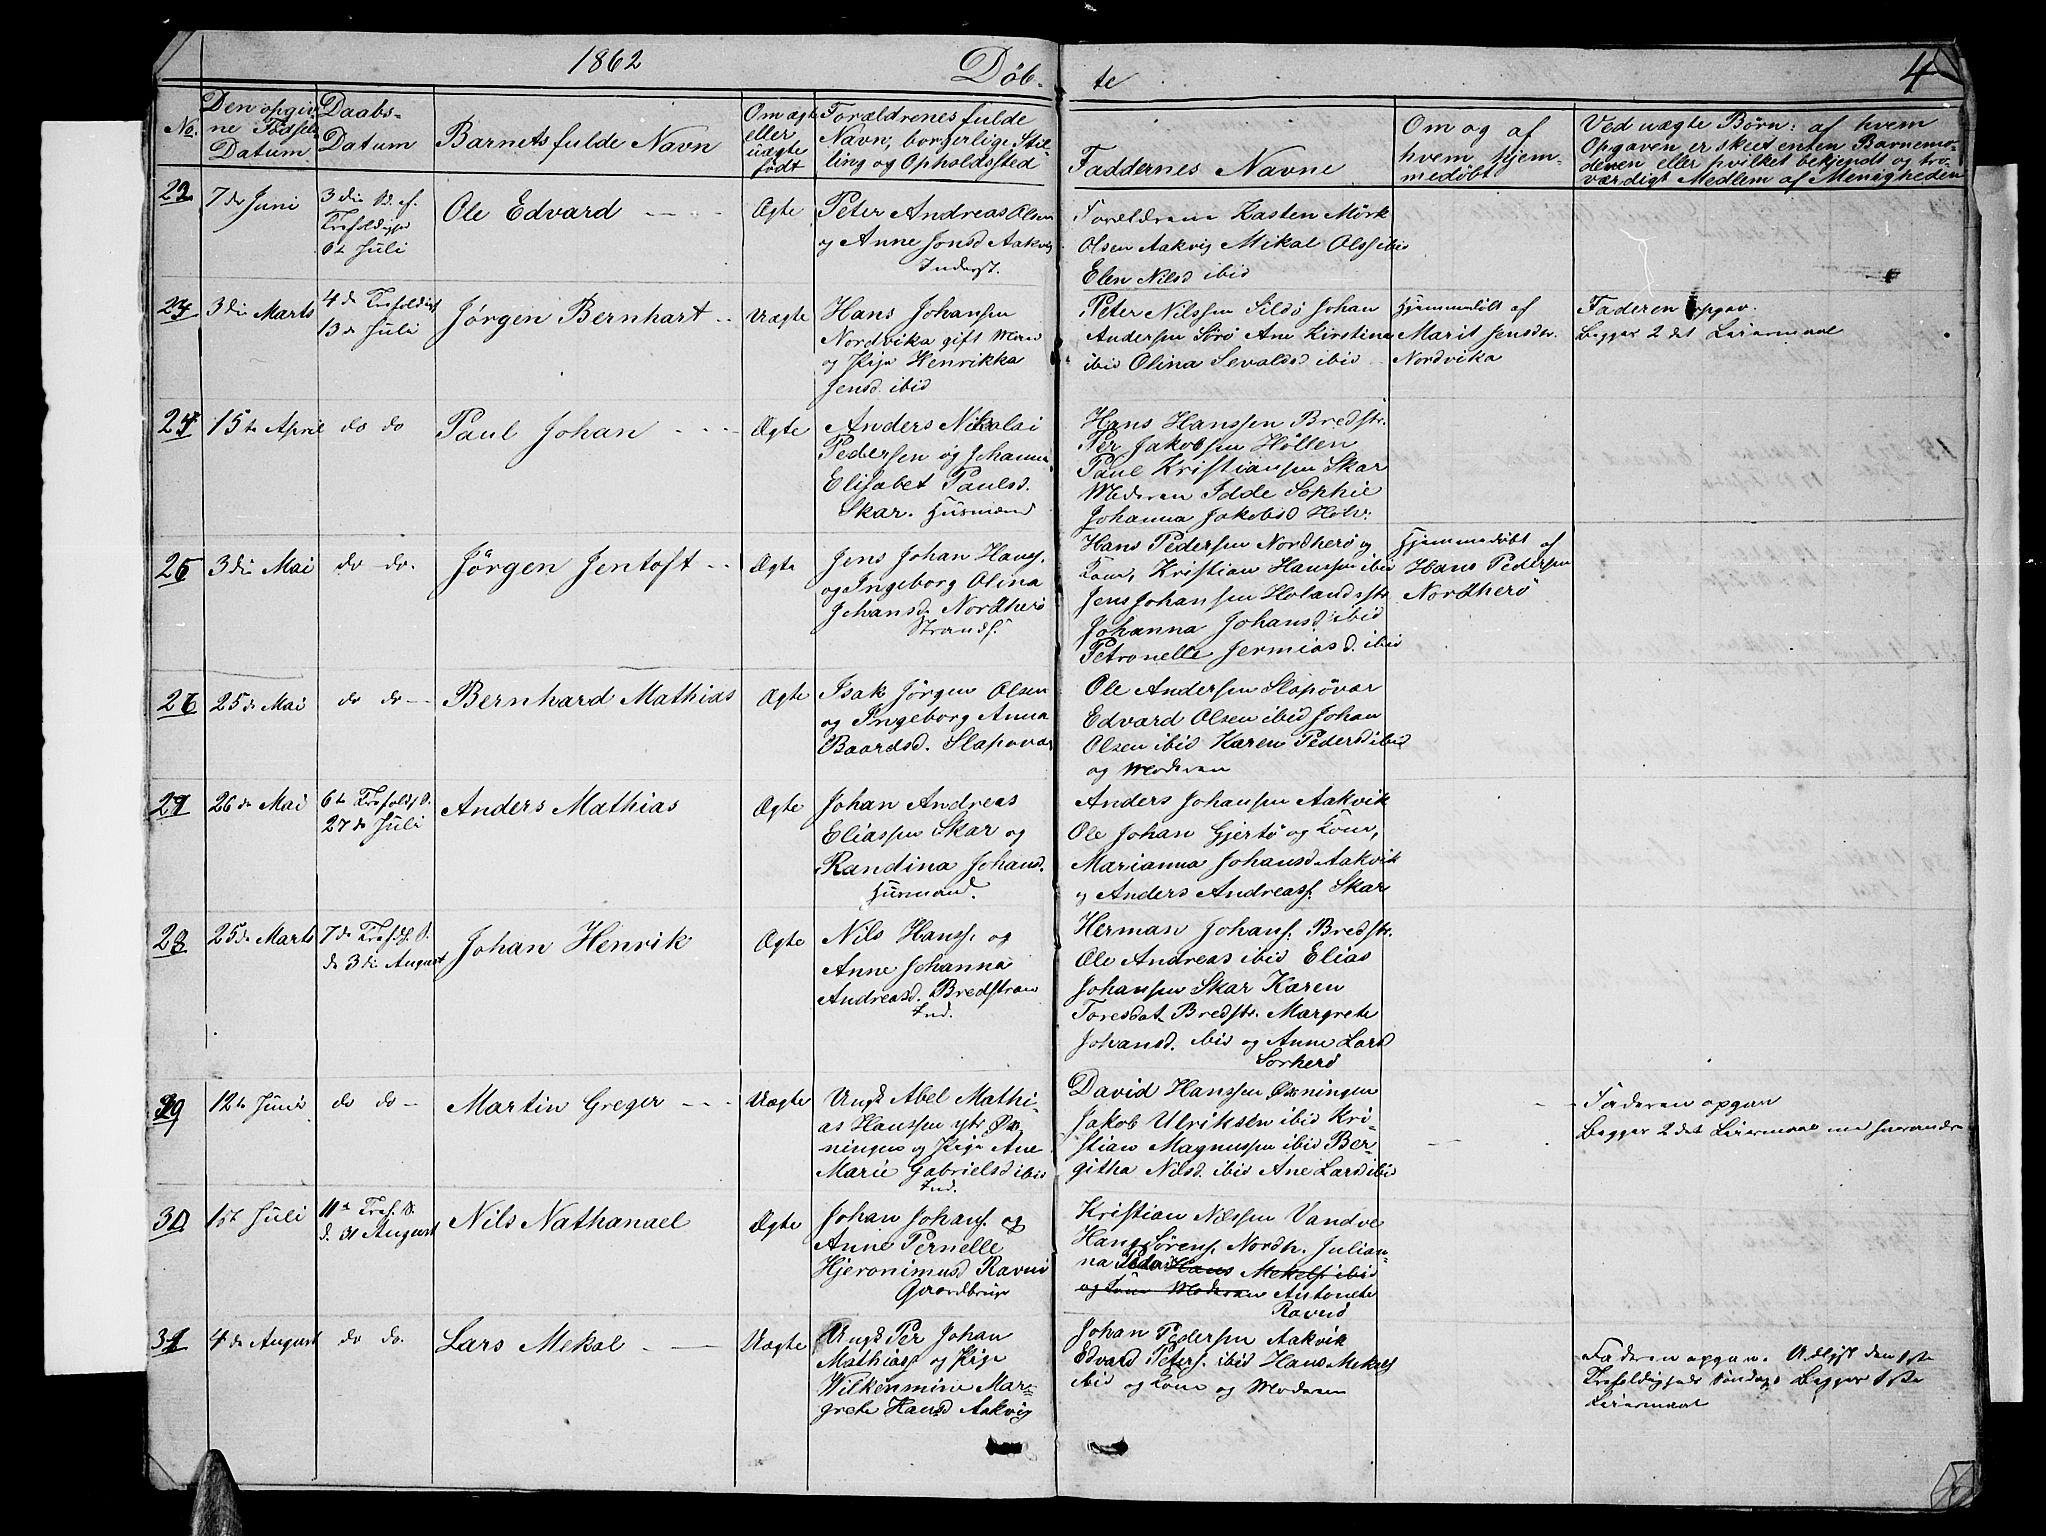 1862 Døb- te 4
No. Den opgivne Fødsels Datum
Daabs- Datum
Barnets fulde Navn
Om ægte eller uægte født
Forældrenes fulde Navn, borgerlige Stilling og Opholdssted
Faddernes Navne
Om og af hvem hjemmedøbt
Ved uægte Børn: af hvem Opgaven er skeet enten Barnemoderen eller hvilket bekjendt og troværdigt Medlem af Menigheden
7de Juni
6te Juli
Ole Edvard
Ægte
Peter Andreas Olsen
og Anne Jonsd Aakvig
Inderst.
Forældrene Kasten Mørk
Olsen Aakvig Mikal Ols ibid
Elen Nilsd ibid
3die Marts
13de Juli
Jørgen Bernhart
Uægte
Hans Johansen
Nordvika gift Mand
og Pige Henrikka
Jensd. ibid
Peter Nilssen Sildø Johan
Andersen Sørø Ane Kirstine
ibid Olina Sevaldsd ibid
Hjemmedøbt af
Marit Jensdtr.
Nordvika
Faderen opgav.
Begges 2det Leiermaal
24
15te April
do do
Paul Johan
Ægte
Anders Nikolai
Pedersen og Johanna
Elisabet Paulsd.
Skar. Husmand
Hans Hanssen Bredstr.
Per Jakobsen Høllen
Paul Kristiansen Skar
Moderen Idde Sophie
Johanna Jakobsd
25
3die Mai
do do.
Jørgen Jentoft
Ægte
Jens Johan Hanss.
og Ingeborg Olina
Johansd. Nordherø
Strands.
Hans Pedersen Nordherø og
Kone, Kristian Hanssen ibid
Jens Johansen Holandsstr
Johanna Johansd. ibid
Petronelle Jermiasd. ibid
Hjemmedøbt af
Hans Pedersen
Nordherø
26
25de Mai
do do
Bernhard Mathias
Ægte
Isak Jørgen Olsen
og Ingeborg Anna
Baardsd. Slapøvar
Ole Andersen Slapøvar
Edvard Olsen ibid Johan
Olsen ibid Karen Pedersd ibid
og Moderen
27
26de Mai
27de Juli
Anders Mathias
Ægte
Johan Andreas
Eliassen Skar og
Randina Johansd.
Husmand.
Anders Johansen Aakvik
Ole Johan Gjertø og Kone,
Marianna Johansd Aakvik
og Anders Andreass. Skar
28
25de Marts
d. 3die August
Johan Henrik
Ægte
Nils Hanss. og
Anne Johanna
Andreasd. Bredstran
Ind.
Herman Johans. Bredstr.
Ole Andreas ibid Elias
Johansen Skar Karen
Toresdat. Bredstr. Margrete
Johansd. ibid og Anne Larsd
Sørherø
29
12te Juni
do do
Martin Greger
Uægte
Ungk Abel Mathi-
as Hanssen ytr Øx
ningen og Pige Ane
Marie Gabrielsd ibid
Ind.
David Hanssen Øxningen
Jakob Ulriksen ibid Kri-
stian Magnussen ibid Ber-
githa Nilsd. ibid Ane Larsd ibid
Faderen opgav
Begges 2det Leiermaal
30
1ste Juli
d. 31 August
Nils Nathanael
Ægte
Johan Johans. og
Anne Pernelle
Hjeronimusd Ravnø
Gaardbruger
Kristian Nilssen Vandve
Hans Sørens. Nordh. Julian-
na Hans Mekels. ibid
og Kone Moderen Antonete
4de August
do do.
Lars Mekal
Uægte
Ungk Per Johan
Mathiass og Pige
Wilkenmine Mar-
grete Hansd Aakvig
Johan Pedersen Aakvik
Edvard Peters. ibid Hans Mekels
ibid og Kone og Moderen
Faderen opgav.
Trefoldigheds Søndag Begges 1ste
Leiermaal